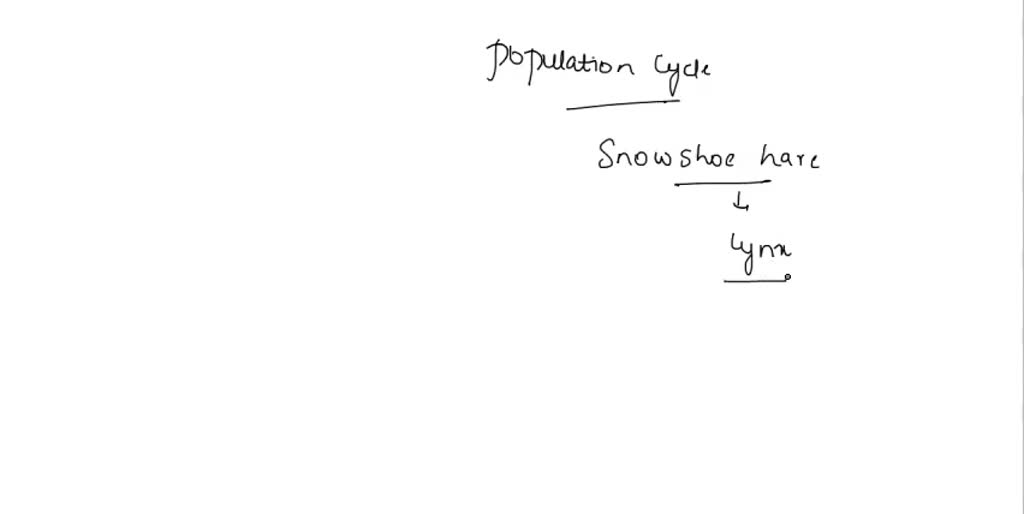 Population Cycle
Snowshoe hare
Lynx